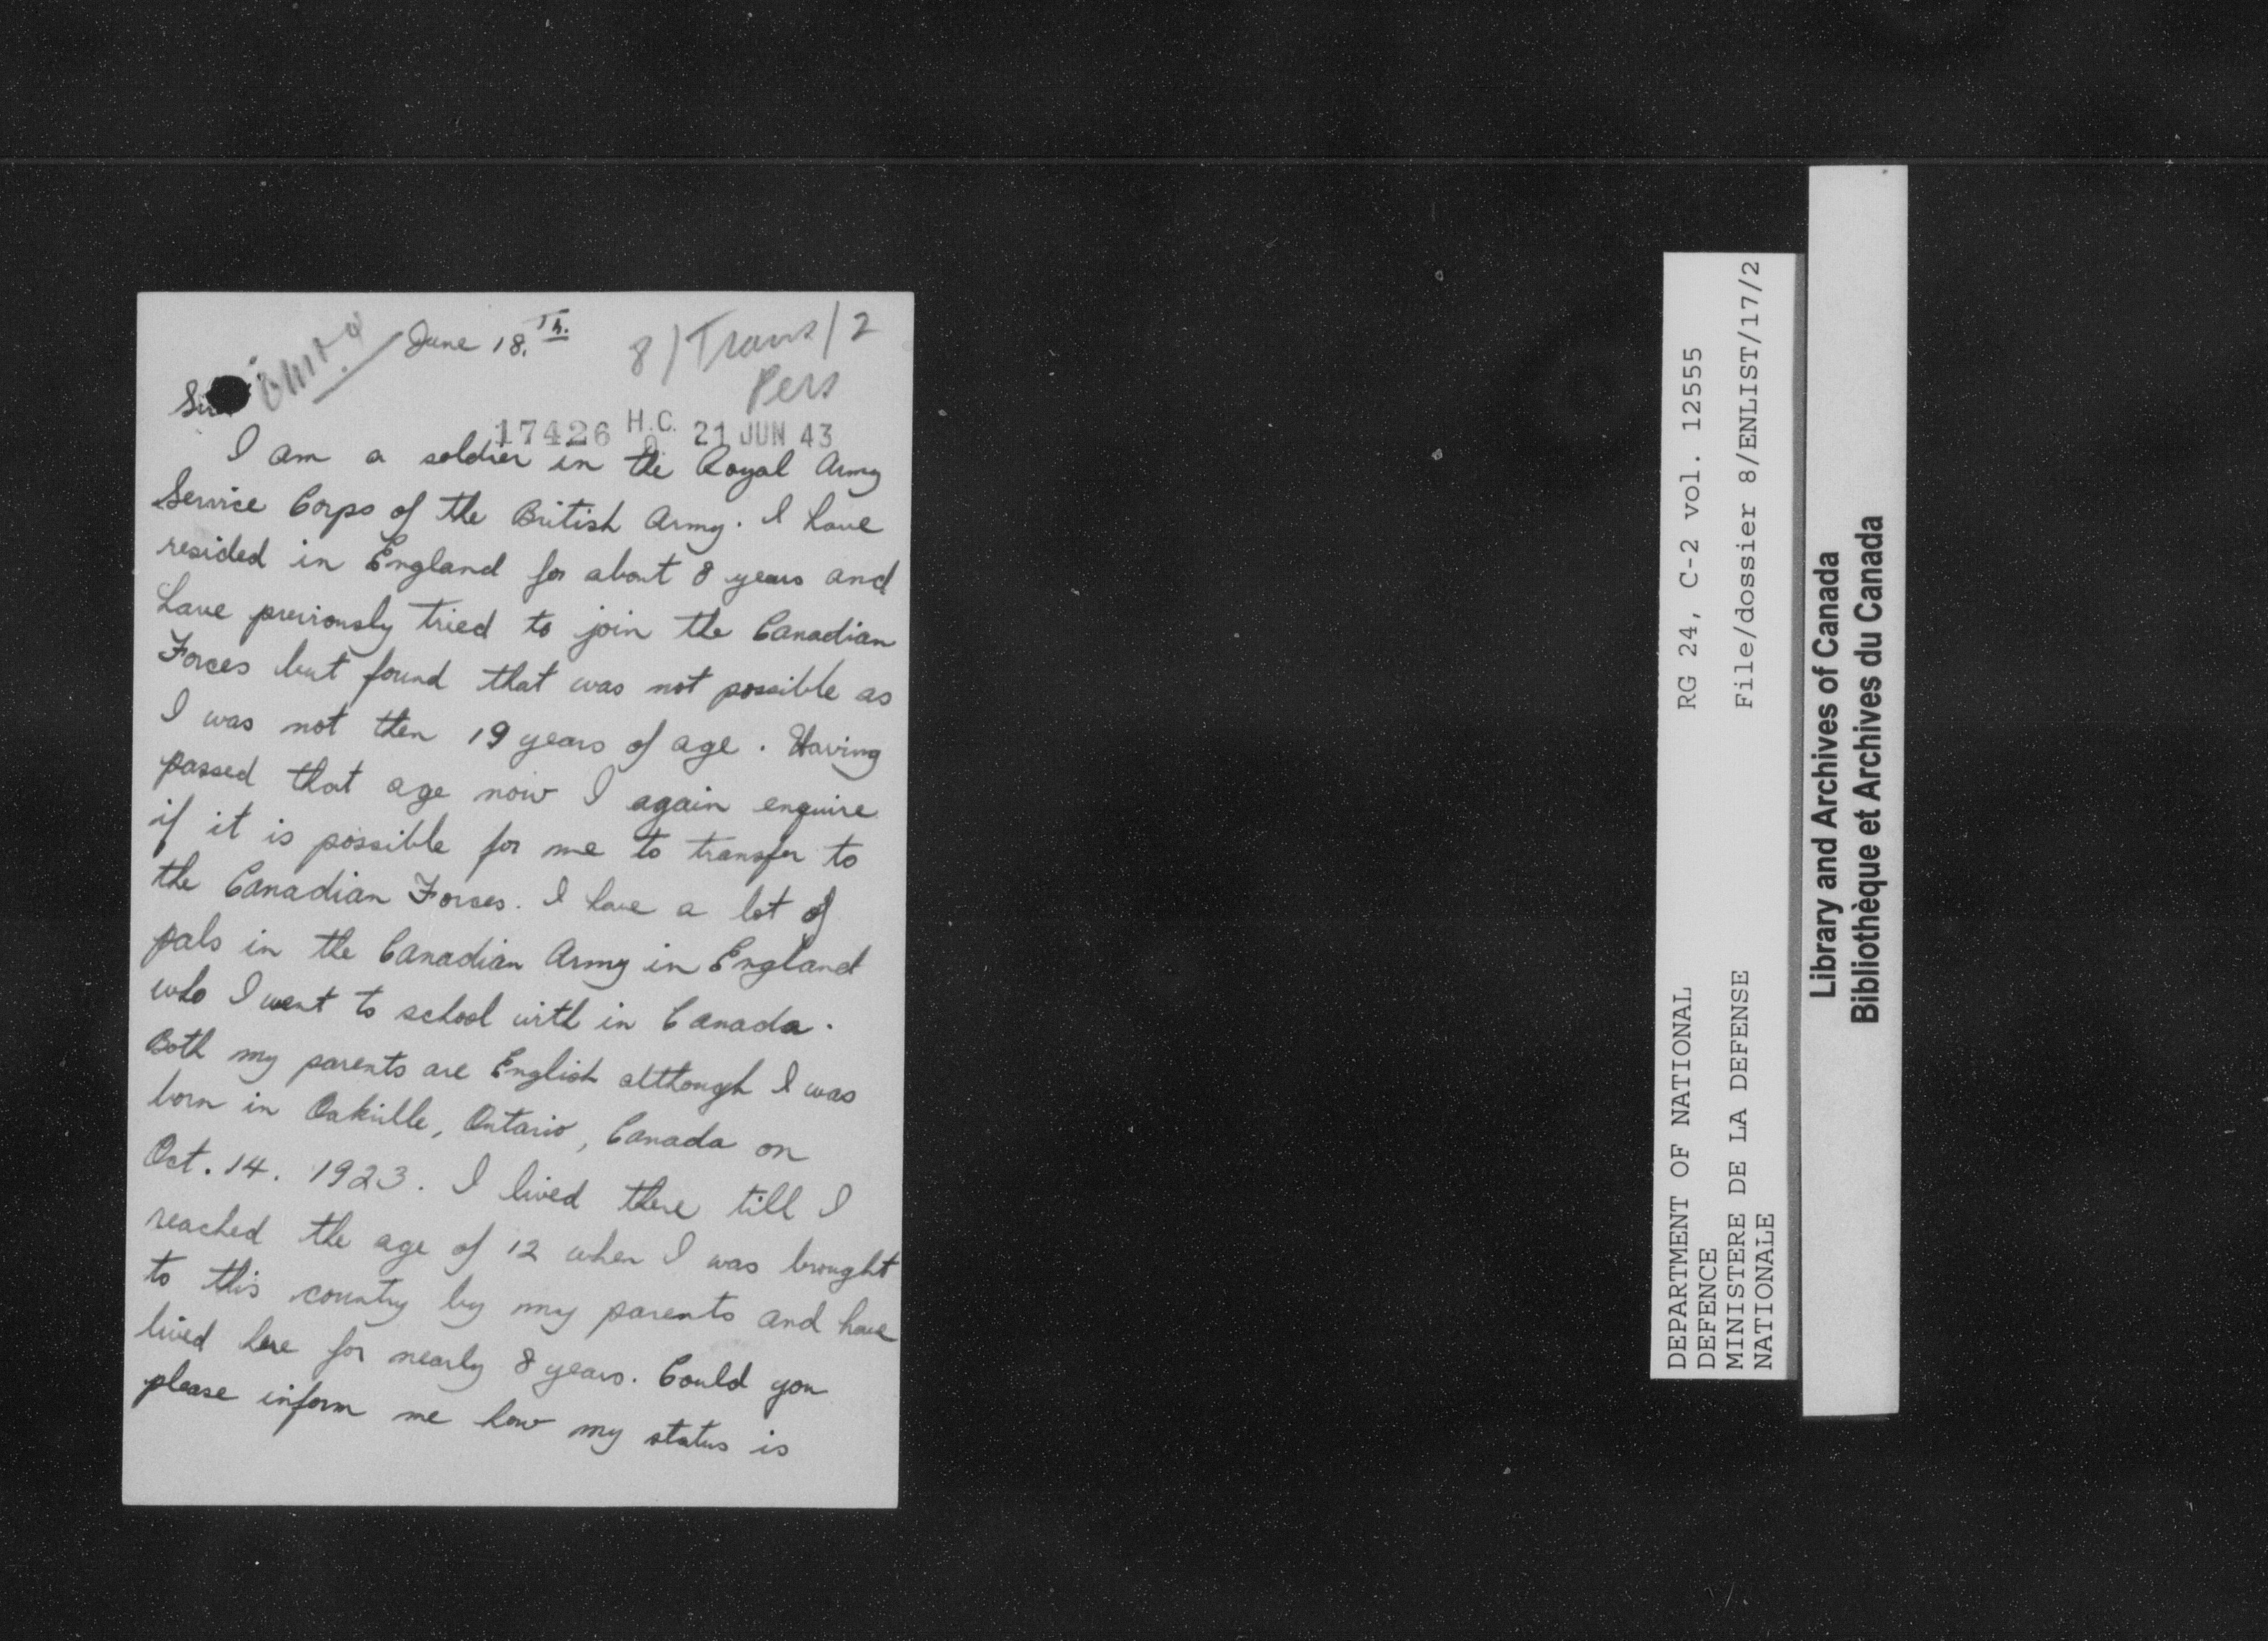 June 18.Th.
8/Trans/2
Pers
Sir
17426 H.C. 21 JUN 43
I am a soldier in the Royal Army
Service Corps of the British Army. I have
resided in England for about 8 years and
have previously tried to join the Canadian
Forces but found that was not possible as
I was not then 19 years of age. Having
passed that age now I again enquire
if it is possible for me to transfer to
the Canadian Forces. I have a lot of
pals in the Canadian Army in England
who I went to school with in Canada.
Both my parents are English although I was
born in Oakville, Ontario, Canada on
Oct. 14. 1923. I lived there till I
reached the age of 12 when I was brought
to this country by my parents and have
lived here for nearly 8 years. Could you
please inform me how my status is
DEPARTMENT OF NATIONAL
DEFENCE
MINISTERE DE LA DEFENSE
NATIONALE
RG 24, C-2 vol. 12555
File/dossier 8/ENLIST/17/2
Library and Archives of Canada
Bibliothèque et Archives du Canada